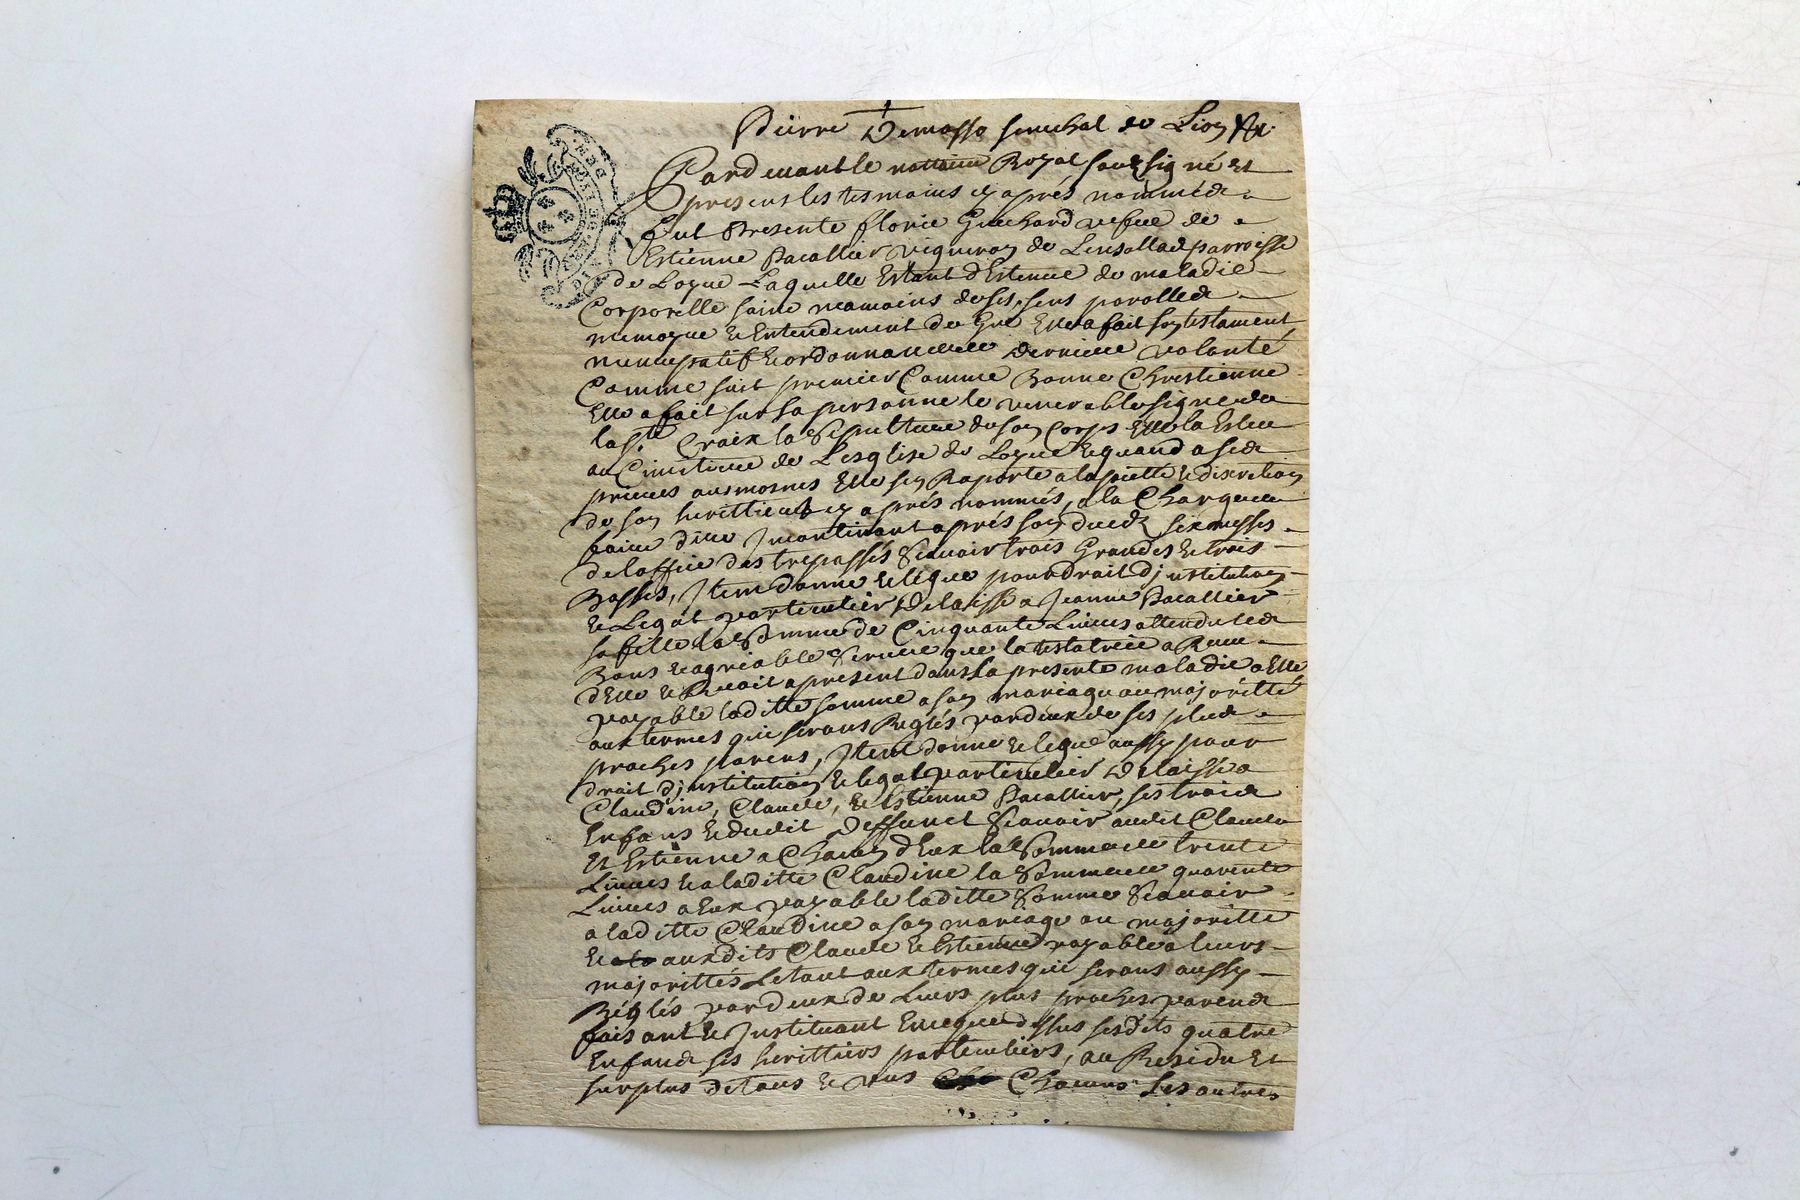 Pierre Demasso senechal de Lion
Pardevant le nottaire Royal soubsigné et
presens les tesmoins cy apres nommés
fut presente florie Guichard vefve de
Estienne Bacallier vigneron de parroisse
de Loyre Laquelle Estant destenue de maladie
Corporelle saine neamoins de ses sens parolles
memoyre et Entendement de Gre Elle a fait son testament
nuncupatif et ordonnance de derniere volonté
Comme suit premier Comme Bonne Chrestienne
Elle a fait sur sa personne le venerable signe de
la Ste Croix la Sepulture de son Corps Elle la Esleu
au Cimetiere de Lesglise de Loyre et quand a ses
prieres ausmosnes Elle sen Raporte a la pietté et discretion
de son herittier cy aprés nommés, a la Charge de
faire dire Incontinant aprés son decedz six messes
de loffice des trepassés Scavoir trois Grandes et trois
Basses, Item donne et legue pour droit d'institution
et Legat particulier Delaisse a Jeanne Bacallier
sa fille la Somme de Cinquante Livres attendu les
Bons et agreable Service que la testatrice a Receu
d'Elle et Recoit a present dans sa presente maladie a Elle
payable laditte somme a son mariage ou majoritté
aux termes qui serons Reglés par deux de ses plus
proches parens, Item donne et legue aussy pour
droit d'institution et legat particulier Delaisse a
Claudine, Claude, et Estienne Bacallier, ses trois
Enfans et dudit Deffunct Scavoir audit Claude
Et Estienne a Chacun d'Eux la Somme de trente
Livres et a laditte Claudine la Somme de quarente
Livres a Eux payable laditte Somme Scavoir
a laditte Claudine a son mariage ou majoritté
Et auxdits Claude et Estienne payable a leurs
majorittés Letout aux termes qui serons aussy
Réglés par deux de Leurs plus proches parens
faisant et Instituant En ce que dessus sesdits quatre
Enfans ses herittiers particuliers, au Residu Et
surplus de tous et vns Chacuns Les autres